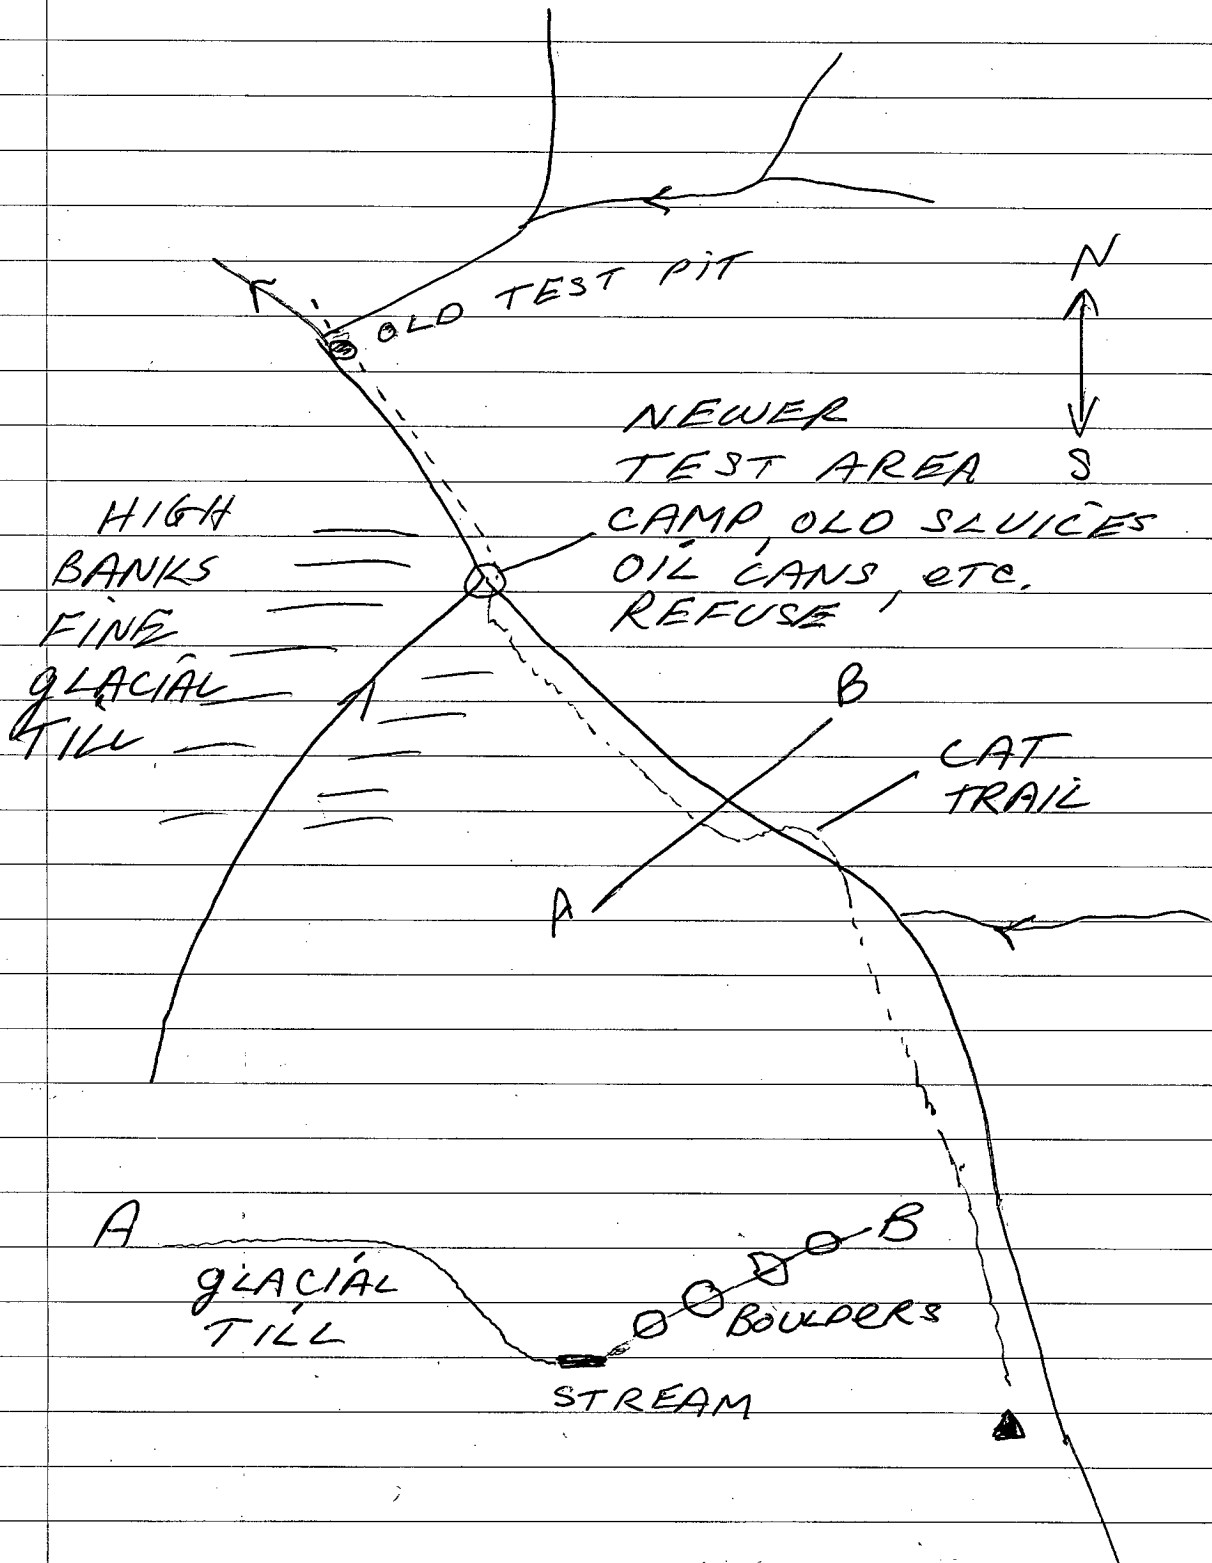 OLD TEST PIT
N
S
NEWER
TEST AREA
CAMP, OLD SLUICES
OIL CANS, ETC.
REFUSE
HIGH
BANKS
FINE
GLACIAL
TILL
B
CAT
TRAIL
A
A
GLACIAL
TILL
B
BOULDERS
STREAM